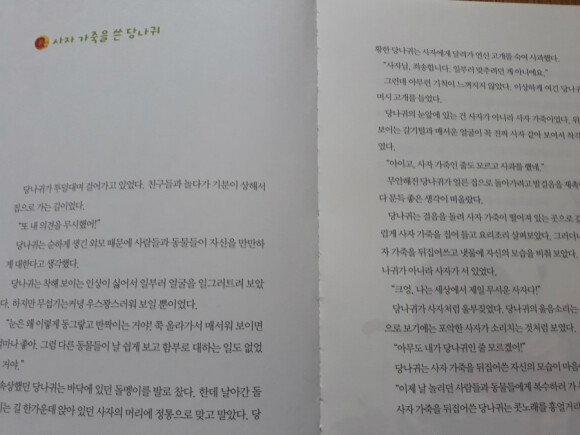 사자 가죽을 쓴 당나귀
당나귀가 투덜대며 걸어가고 있었다. 친구들과 놀다가 기분이 상해서
집으로 가는 길이었다.
“또 내 의견을 무시했어!”
당나귀는 순하게 생긴 외모 때문에 사람들과 동물들이 자신을 만만하
게 대한다고 생각했다.
당나귀는 착해 보이는 인상이 싫어서 일부러 얼굴을 일그러트려 보았
다. 하지만 무섭기는커녕 우스꽝스러워 보일 뿐이었다.
“눈은 왜 이렇게 동그랗고 반짝이는 거야! 쭉 올라가서 매서워 보이면
얼마나 좋아. 그럼 다른 동물들이 날 쉽게 보고 함부로 대하는 일도 없었
거야.”
속상했던 당나귀는 바닥에 있던 돌멩이를 발로 찼다. 한데 날아간 돌
는 길 한가운데 앉아 있던 사자의 머리에 정통으로 맞고 말았다. 당
황한 당나귀는 사자에게 달려가 연신 고개를 숙여 사과했다.
“사자님, 죄송합니다. 일부러 맞추려던 게 아니에요.”
그런데 아무런 기척이 느껴지지 않았다. 이상하게 여긴 당나귀
며시 고개를 들었다.
당나귀의 눈앞에 있는 건 사자가 아니라 사자 가죽이었다. 위
보이는 갈기털과 매서운 얼굴이 꼭 진짜 사자 같아 보여서 착각
였다.
“아이고, 사자 가죽인 줄도 모르고 사과를 했네.”
무안해진 당나귀가 얼른 집으로 돌아가려고 발걸음을 재촉
다 문득 좋은 생각이 떠올랐다.
당나귀는 걸음을 돌려 사자 가죽이 떨어져 있는 곳으로 갔
럽게 사자 가죽을 집어 들고 요리조리 살펴보았다. 그러더니
자 가죽을 뒤집어쓰고 냇물에 자신의 모습을 비춰 보았다.
나귀가 아니라 사자가 서 있었다.
“크엉, 나는 세상에서 제일 무서운 사자다!”
당나귀가 사자처럼 울부짖었다. 당나귀의 울음소리는
으로 보기에는 포악한 사자가 소리치는 것처럼 보였다.
“아무도 내가 당나귀인 줄 모르겠어!”
당나귀는 사자 가죽을 뒤집어쓴 자신의 모습이 마음
“이제 날 놀리던 사람들과 동물들에게 복수하러 가
사자 가죽을 뒤집어쓴 당나귀는 콧노래를 흥얼거리